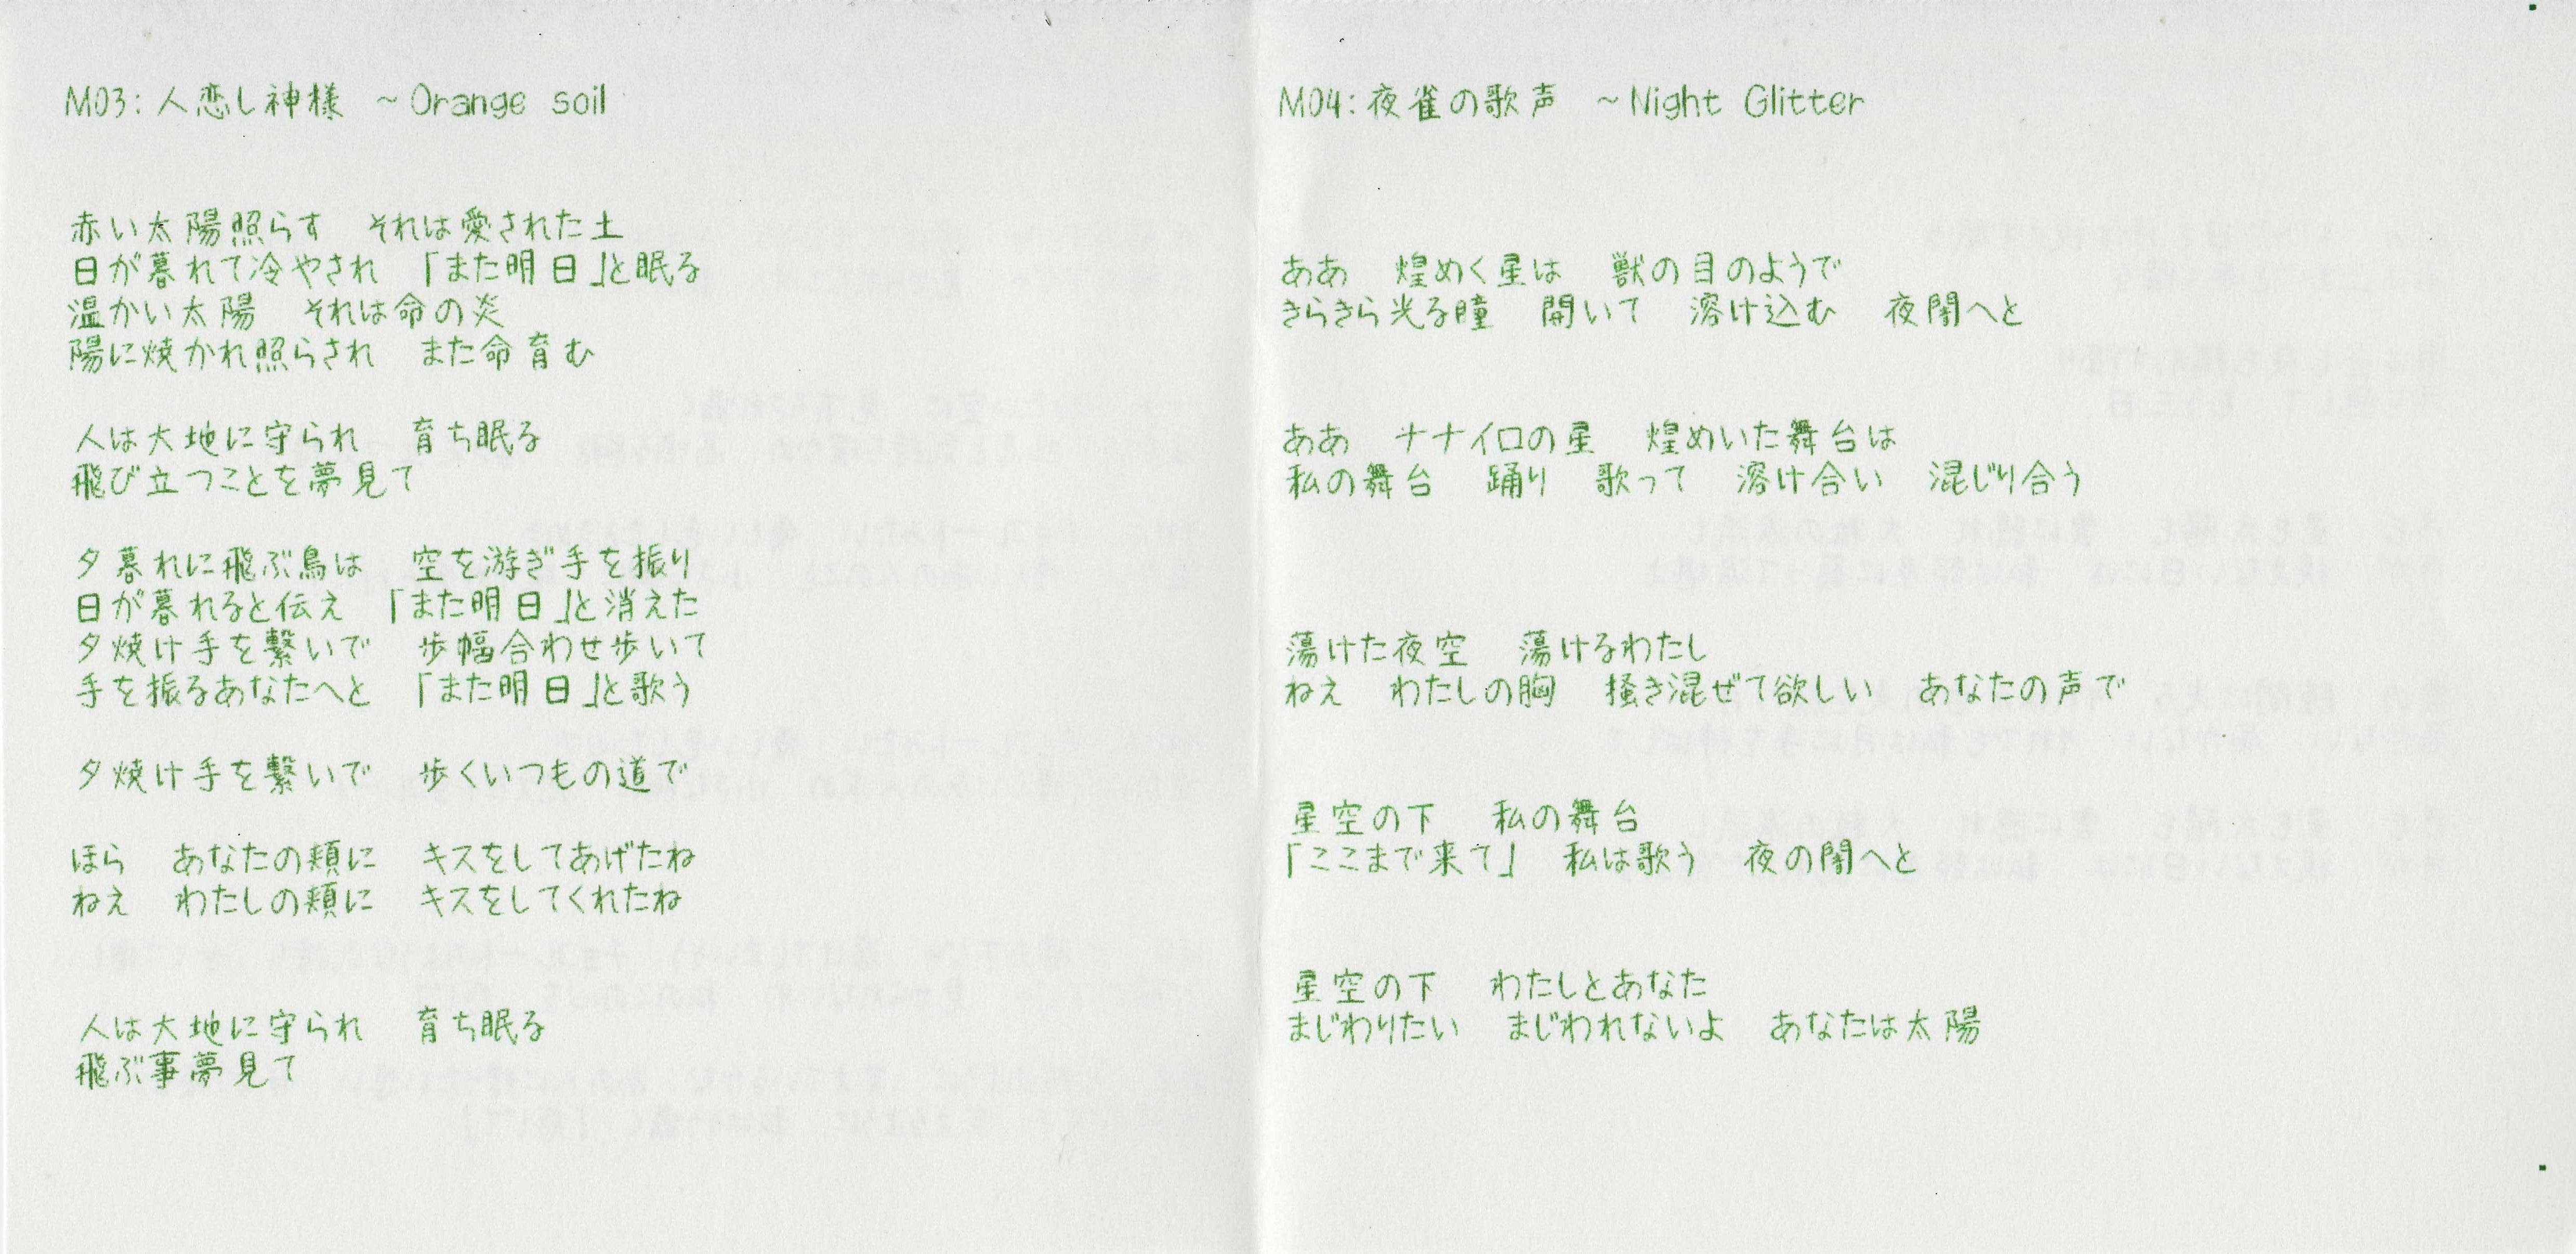 M03:人恋し神様　~Orange soil
赤い太陽照らす　それは愛された土
日が暮れて冷やされ　「また明日」と眠る
温かい太陽　それは命の炎
陽に焼かれ照らされ　また命育む
人は大地に守られ　育ち眠る
飛び立つことを夢見て
夕暮れに飛ぶ鳥は　空を游ぎ手を振り
日が暮れると伝え　「また明日」と消えた
夕焼け手を繋いで　歩幅合わせ歩いて
手を振るあなたへと　「また明日」と歌う
夕焼け手を繋いで　歩くいつもの道で
ほら　あなたの頬に　キスをしてあげたね
ねえ　わたしの頬に　キスをしてくれたね
人は大地に守られ　育ち眠る
飛ぶ事夢見て
M04:夜雀の歌声　~Night Glitter
ああ　煌めく星は　獣の目のようで
きらきら光る瞳　開いて　溶け込む　夜闇へと
ああ　ナナイロの星　煌めいた舞台は
私の舞台　踊り　歌って　溶け合い　混じり合う
蕩けた夜空　蕩けるわたし
ねえ　わたしの胸　掻き混ぜて欲しい　あなたの声で
星空の下　私の舞台
「ここまで来て」　私は歌う　夜の闇へと
星空の下　わたしとあなた
まじわりたい　まじわれないよ　あなたは太陽